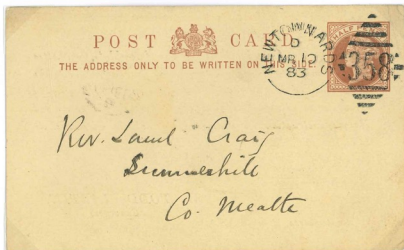 POST CARD
THE ADDRESS ONLY TO BE WRITTEN ON THIS SIDE.
HALF
NEWTOWNARDS
D
MR 12
83
358
Rev. Saml Craig
Summerhill
Co. Meath